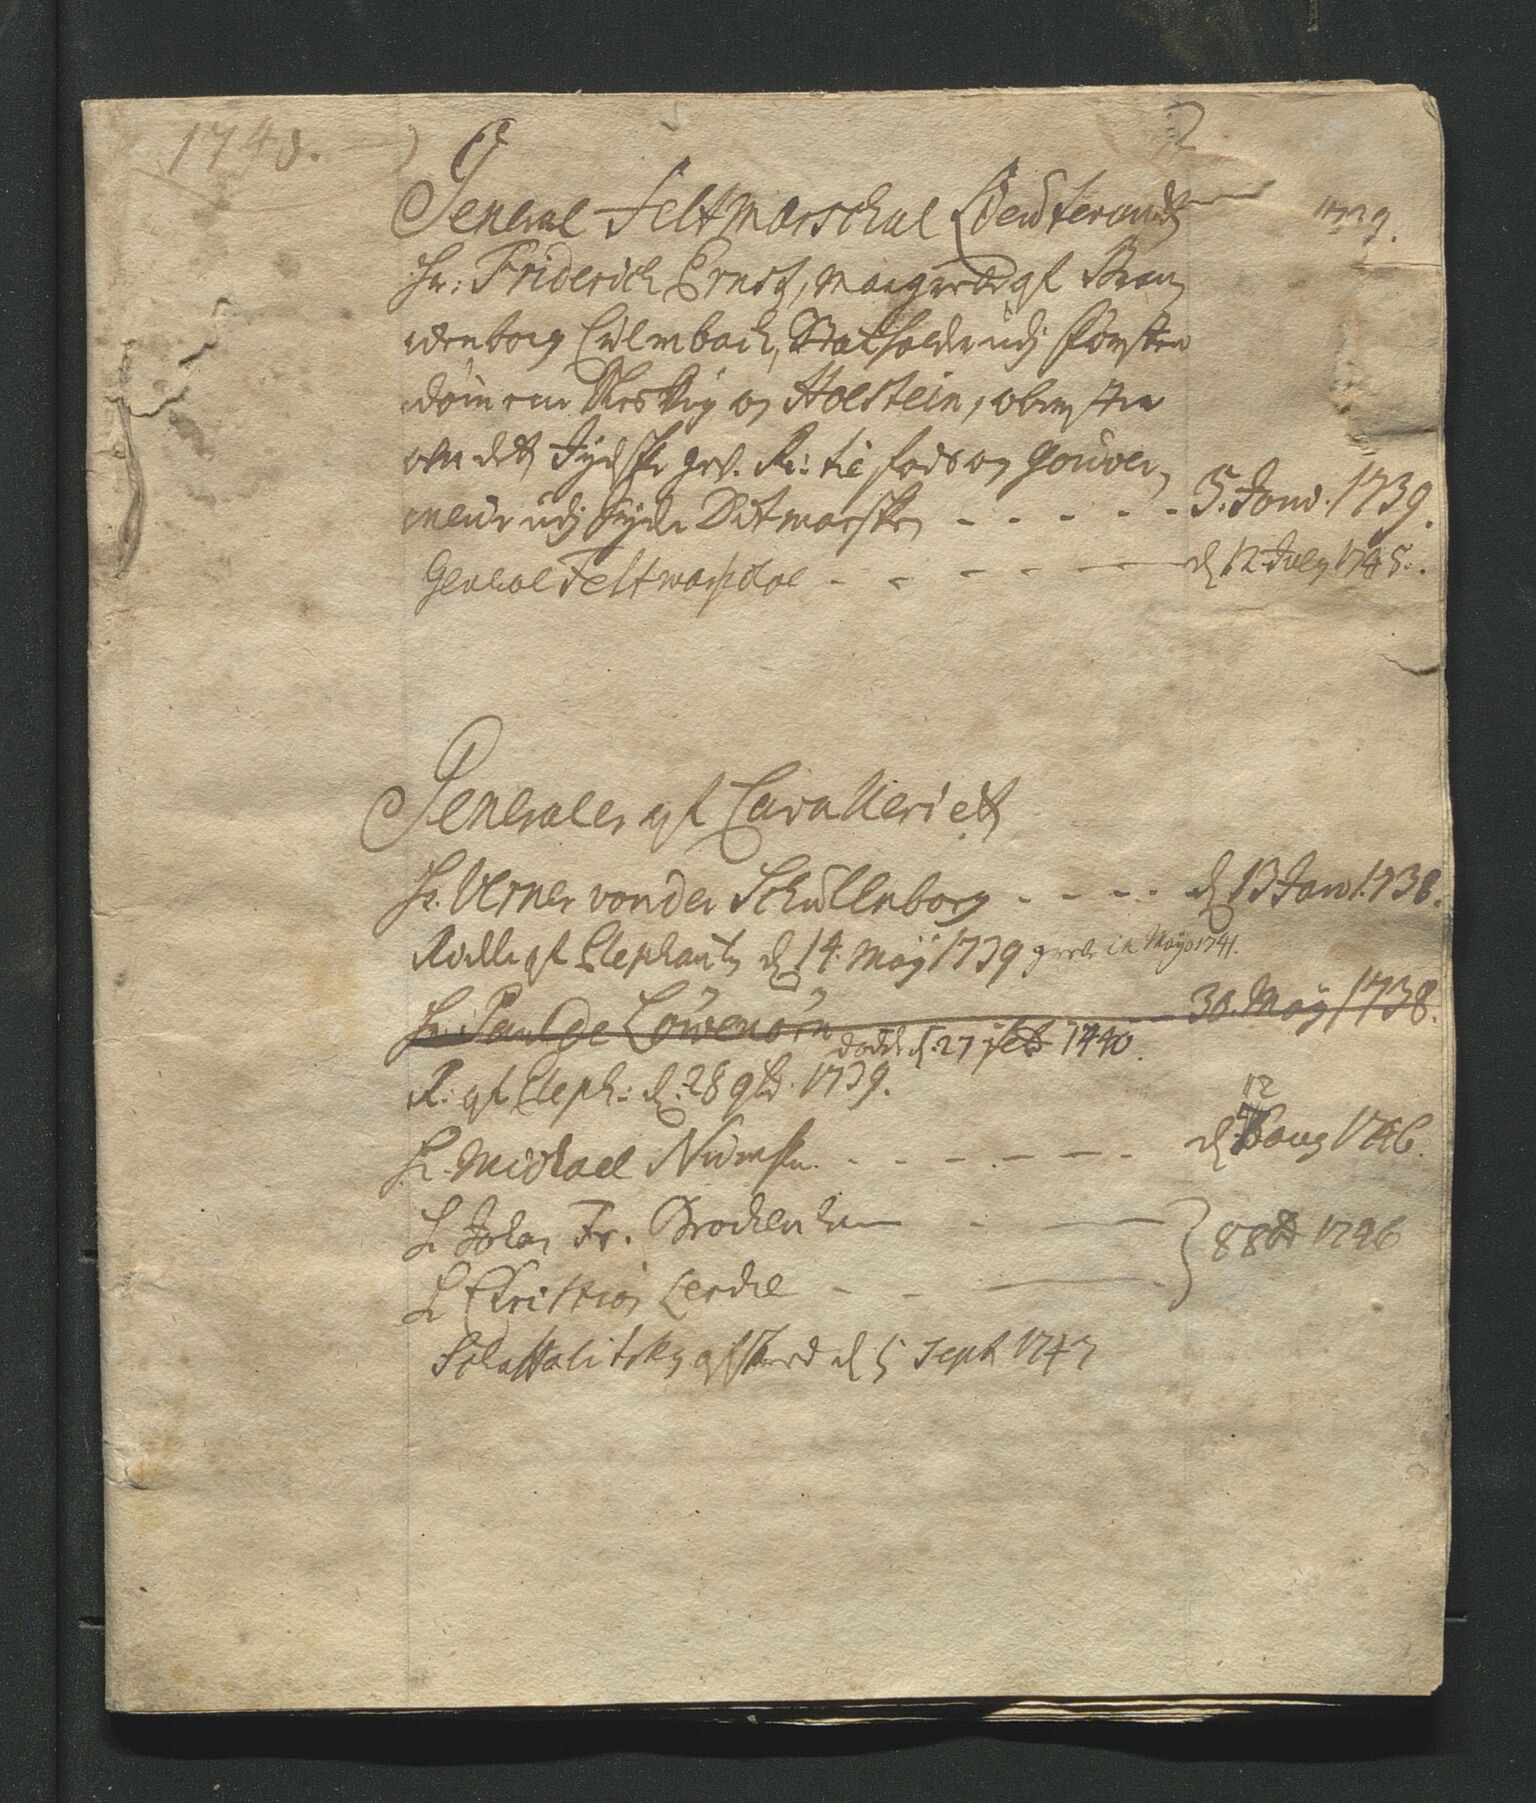 1740.
2
General Feltmarschal Lieutenant
1739.
Hr: Friderich Ernst, Marggrede af Bran
denborg Culmbach, Statholder udj Første
dømmene Slesvig og Holstein, obersten
over det Jydske gev. R: til fods og Gouver
neur udj Syder Ditmarsken - - - - - 5. Janv. 1739.
General Feltmarschal - - - - - d 12 July 1745.
Generaler af Cavalleriet
Hr. Verner von der Schullenborg - - - - d 13 Janv 1738.
Ridder af Elephanten d 14. Maÿ 1739 greve in Mayo 1741.
Hr: Paul de Löwenörn 30. Maÿ 1738.
døde d. 27 feb 1740.
R: af Eleph: d. 28 9br. 1739.
Hr. Michael Numsen - - - - - - d 12 aug 1746.
Hr Johan Fr. Brockenhuus - -
88br 1746
Hr Christian Lerche - - -
Schattalitsky afskeed d 5 Sept 1747